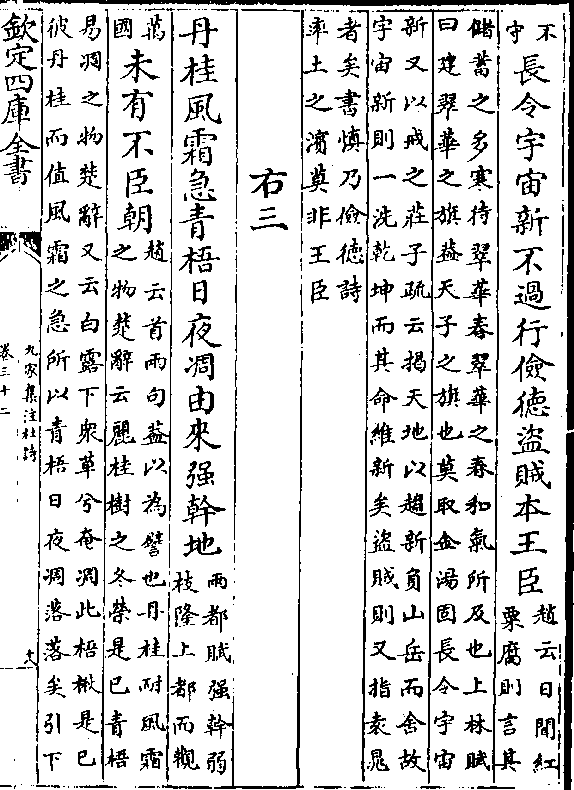 不守長令宇宙新不過行儉徳盜賊本王臣趙云日聞紅粟腐則言其
儲蓄之多寒待翠華春翠華之春和氣所及也上林賦
曰建翠華之旗葢天子之旗也莫取金湯固長令宇宙
新又以戒之莊子疏云揭天地以趨新負山岳而舍故
宇宙新則一洗乾坤而其命維新矣盜賊則又指袁晁
者矣書慎乃儉徳詩
率土之濱莫非王臣
右三
丹桂風霜急青梧日夜凋由來强幹地兩都賦强幹弱枝隆上都而觀
萬國未有不臣朝趙云首兩句葢以為譬也丹桂耐風霜之物楚辭云麗桂樹之冬榮是已青梧
易凋之物楚辭又云白露下衆草兮奄凋此梧楸是已
彼丹桂而值風霜之急所以青梧日夜凋落落矣引下
欽定四庫全書
九家集注杜詩
卷三十二
十八